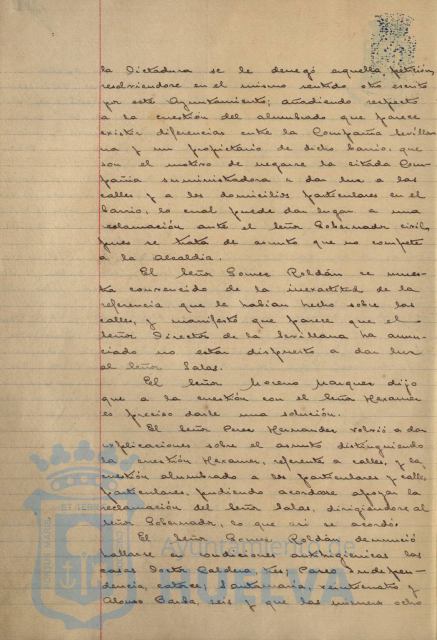 la Dictadura se le denegó aquella petición,
resolviendose en el mismo sentido otro escrito
por este Ayuntamiento; añadiendo respecto
a la cuestión del alumbrado que parece
existir diferencias entre la Compañia Sevilla-
na y un propietario de dicho barrio, que
son el motivo de negarse la citada Com-
pañia suministradora a dar luz a las
calles y a los domicilios particulares en el
barrio, lo cual puede dar lugar a una
reclamación ante el Señor Gobernador civil,
pues se trata de asunto que no compete
a la Alcaldia.
El Señor Gomez Roldán se mues-
tra convencido de la inexactitud de la
referencia que le habian hecho sobre las
calles, y manifestó que parece que el
Señor Director de la Sevillana ha anun-
ciado no estar dispuesto a dar luz
al Señor Salas.
El Señor Moreno Marquez dijo
que a la cuestión con el Señor Hexamer
es preciso darle una solución.
El Señor Perez Hernandez volvió a dar
explicaciones sobre el asunto distinguiendo
la cuestión Hexamer, referente a calles, y la
cuestión alumbrado a los particulares y calles
particulares, pudiendo acordarse apoyar la
reclamación del Señor Salas, dirigiendose al
Señor Gobernador, lo que asi se acordó.
El Señor Gomez Roldán denunció
hallarse en condiciones antihigienicas las
casas Doctor Cadena tres, Paseo Indepen-
dencia, catorce, Santa Maria, veinticuatro y
Alonso Barba, seis y que las mismas ocho
Ayuntamiento de
HUELVA